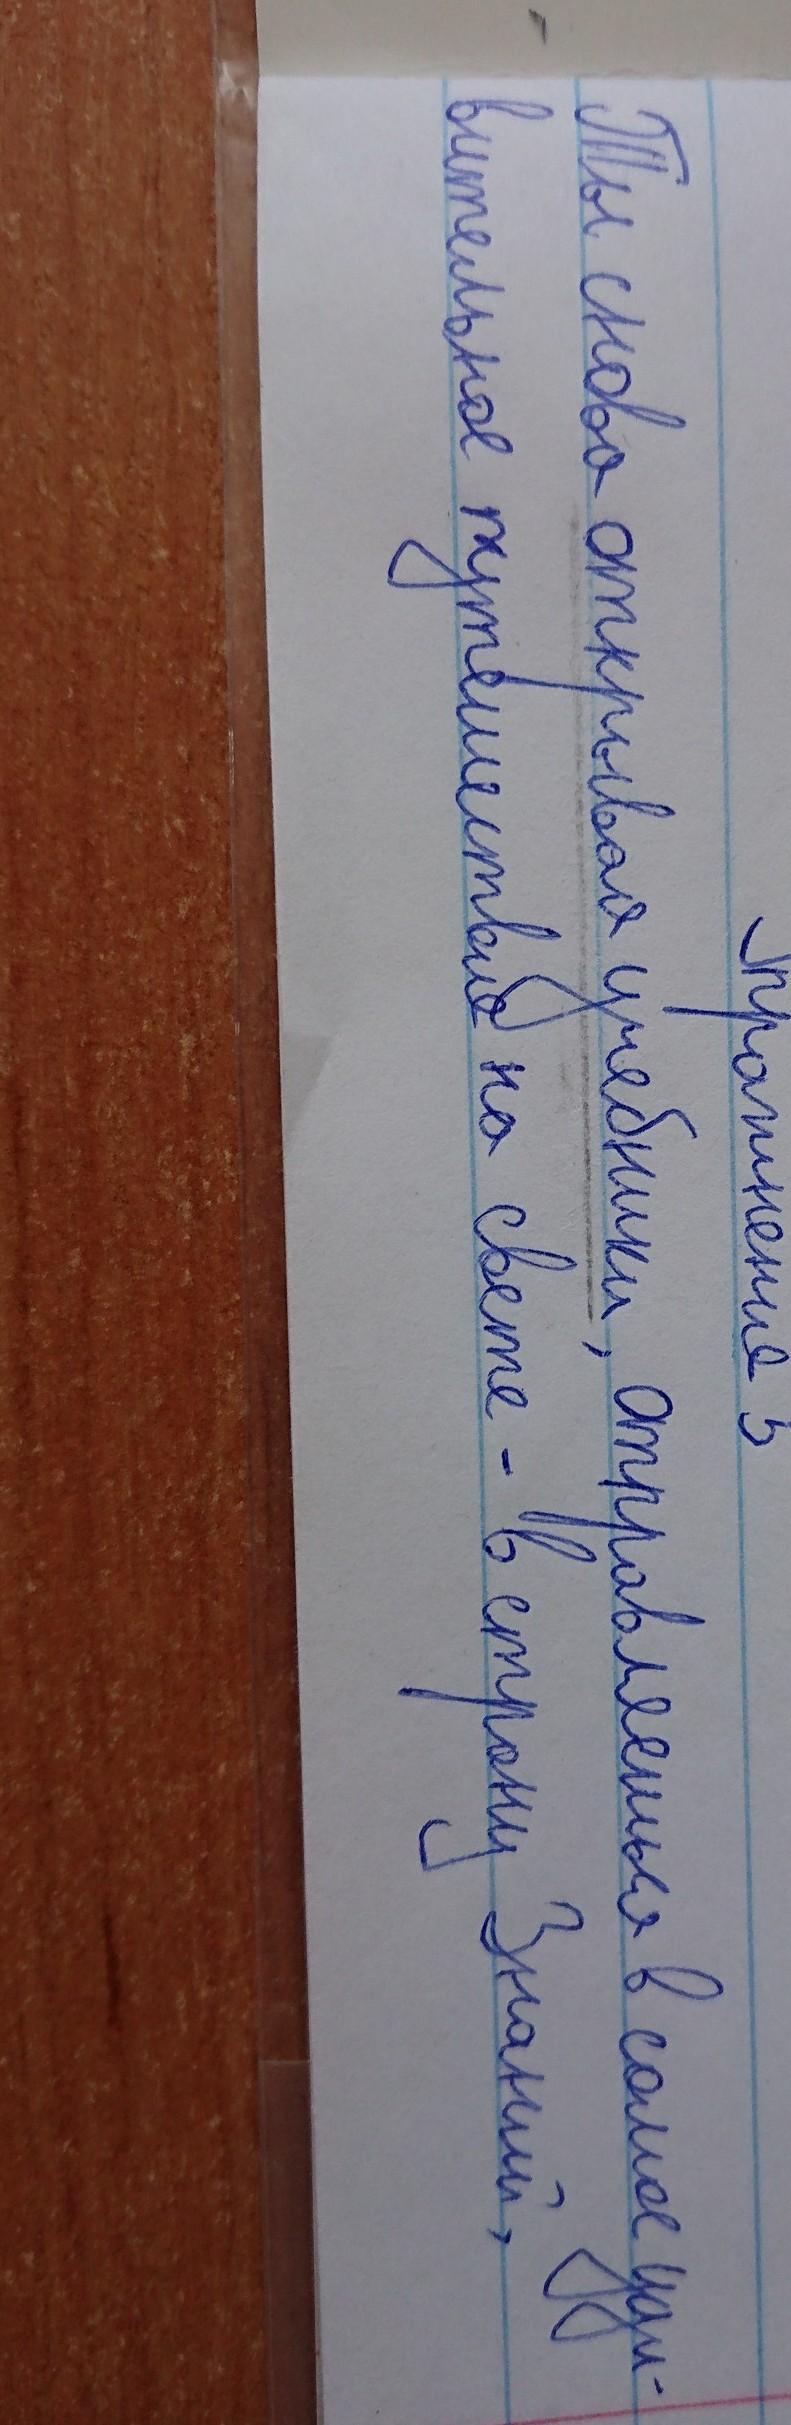 Упражнение 3
Ты снова открывая учебники, отправляешься в самое уди-
вительное путешествие на свете - в страну Знаний,